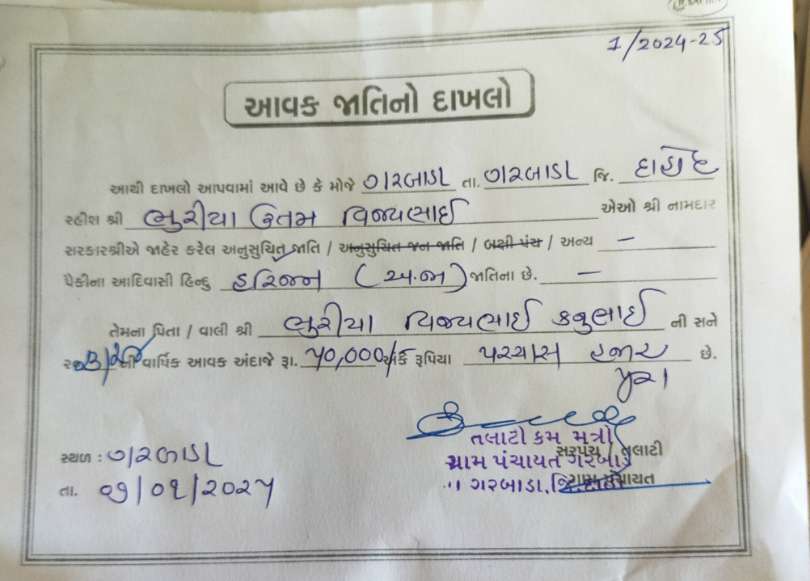 1/2024-25
આવક જાતિનો દાખલો
આથી દાખલો આપવામાં આવે છે કે મોજે ગરબાડા તા. ગરબાડા જિ. દાહોદ
રહીશ શ્રી ભુરીયા ઉત્તમ વિજયભાઈ એઓ શ્રી નામદાર
સરકારશ્રીએ જાહેર કરેલ અનુસુચિત જાતિ / અનુસુચિત જન જાતિ / બક્ષી પંચ / અન્ય —
પૈકીના આદિવાસી હિન્દુ હરિજન (અ.જા) જાતિના છે. —
તેમના પિતા / વાલી શ્રી ભુરીયા વિજયભાઈ કનુભાઈ ની સને
૨૦૨૩/૨૪ ની વાર્ષિક આવક અંદાજે રૂા. ૫૦,૦૦૦/- અંકે રૂપિયા પચાસ હજાર છે.
પુરા
તલાટી કમ મંત્રી
સ્થળ : ગરબાડા સરપંચ / તલાટી
ગ્રામ પંચાયત ગરબાડા
તા. ૦૧/૦૧/૨૦૨૫ ગ્રામ પંચાયત
તા ગરબાડા, જિ. દાહોદ